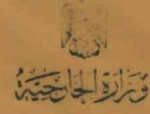 وزارة الخارجية